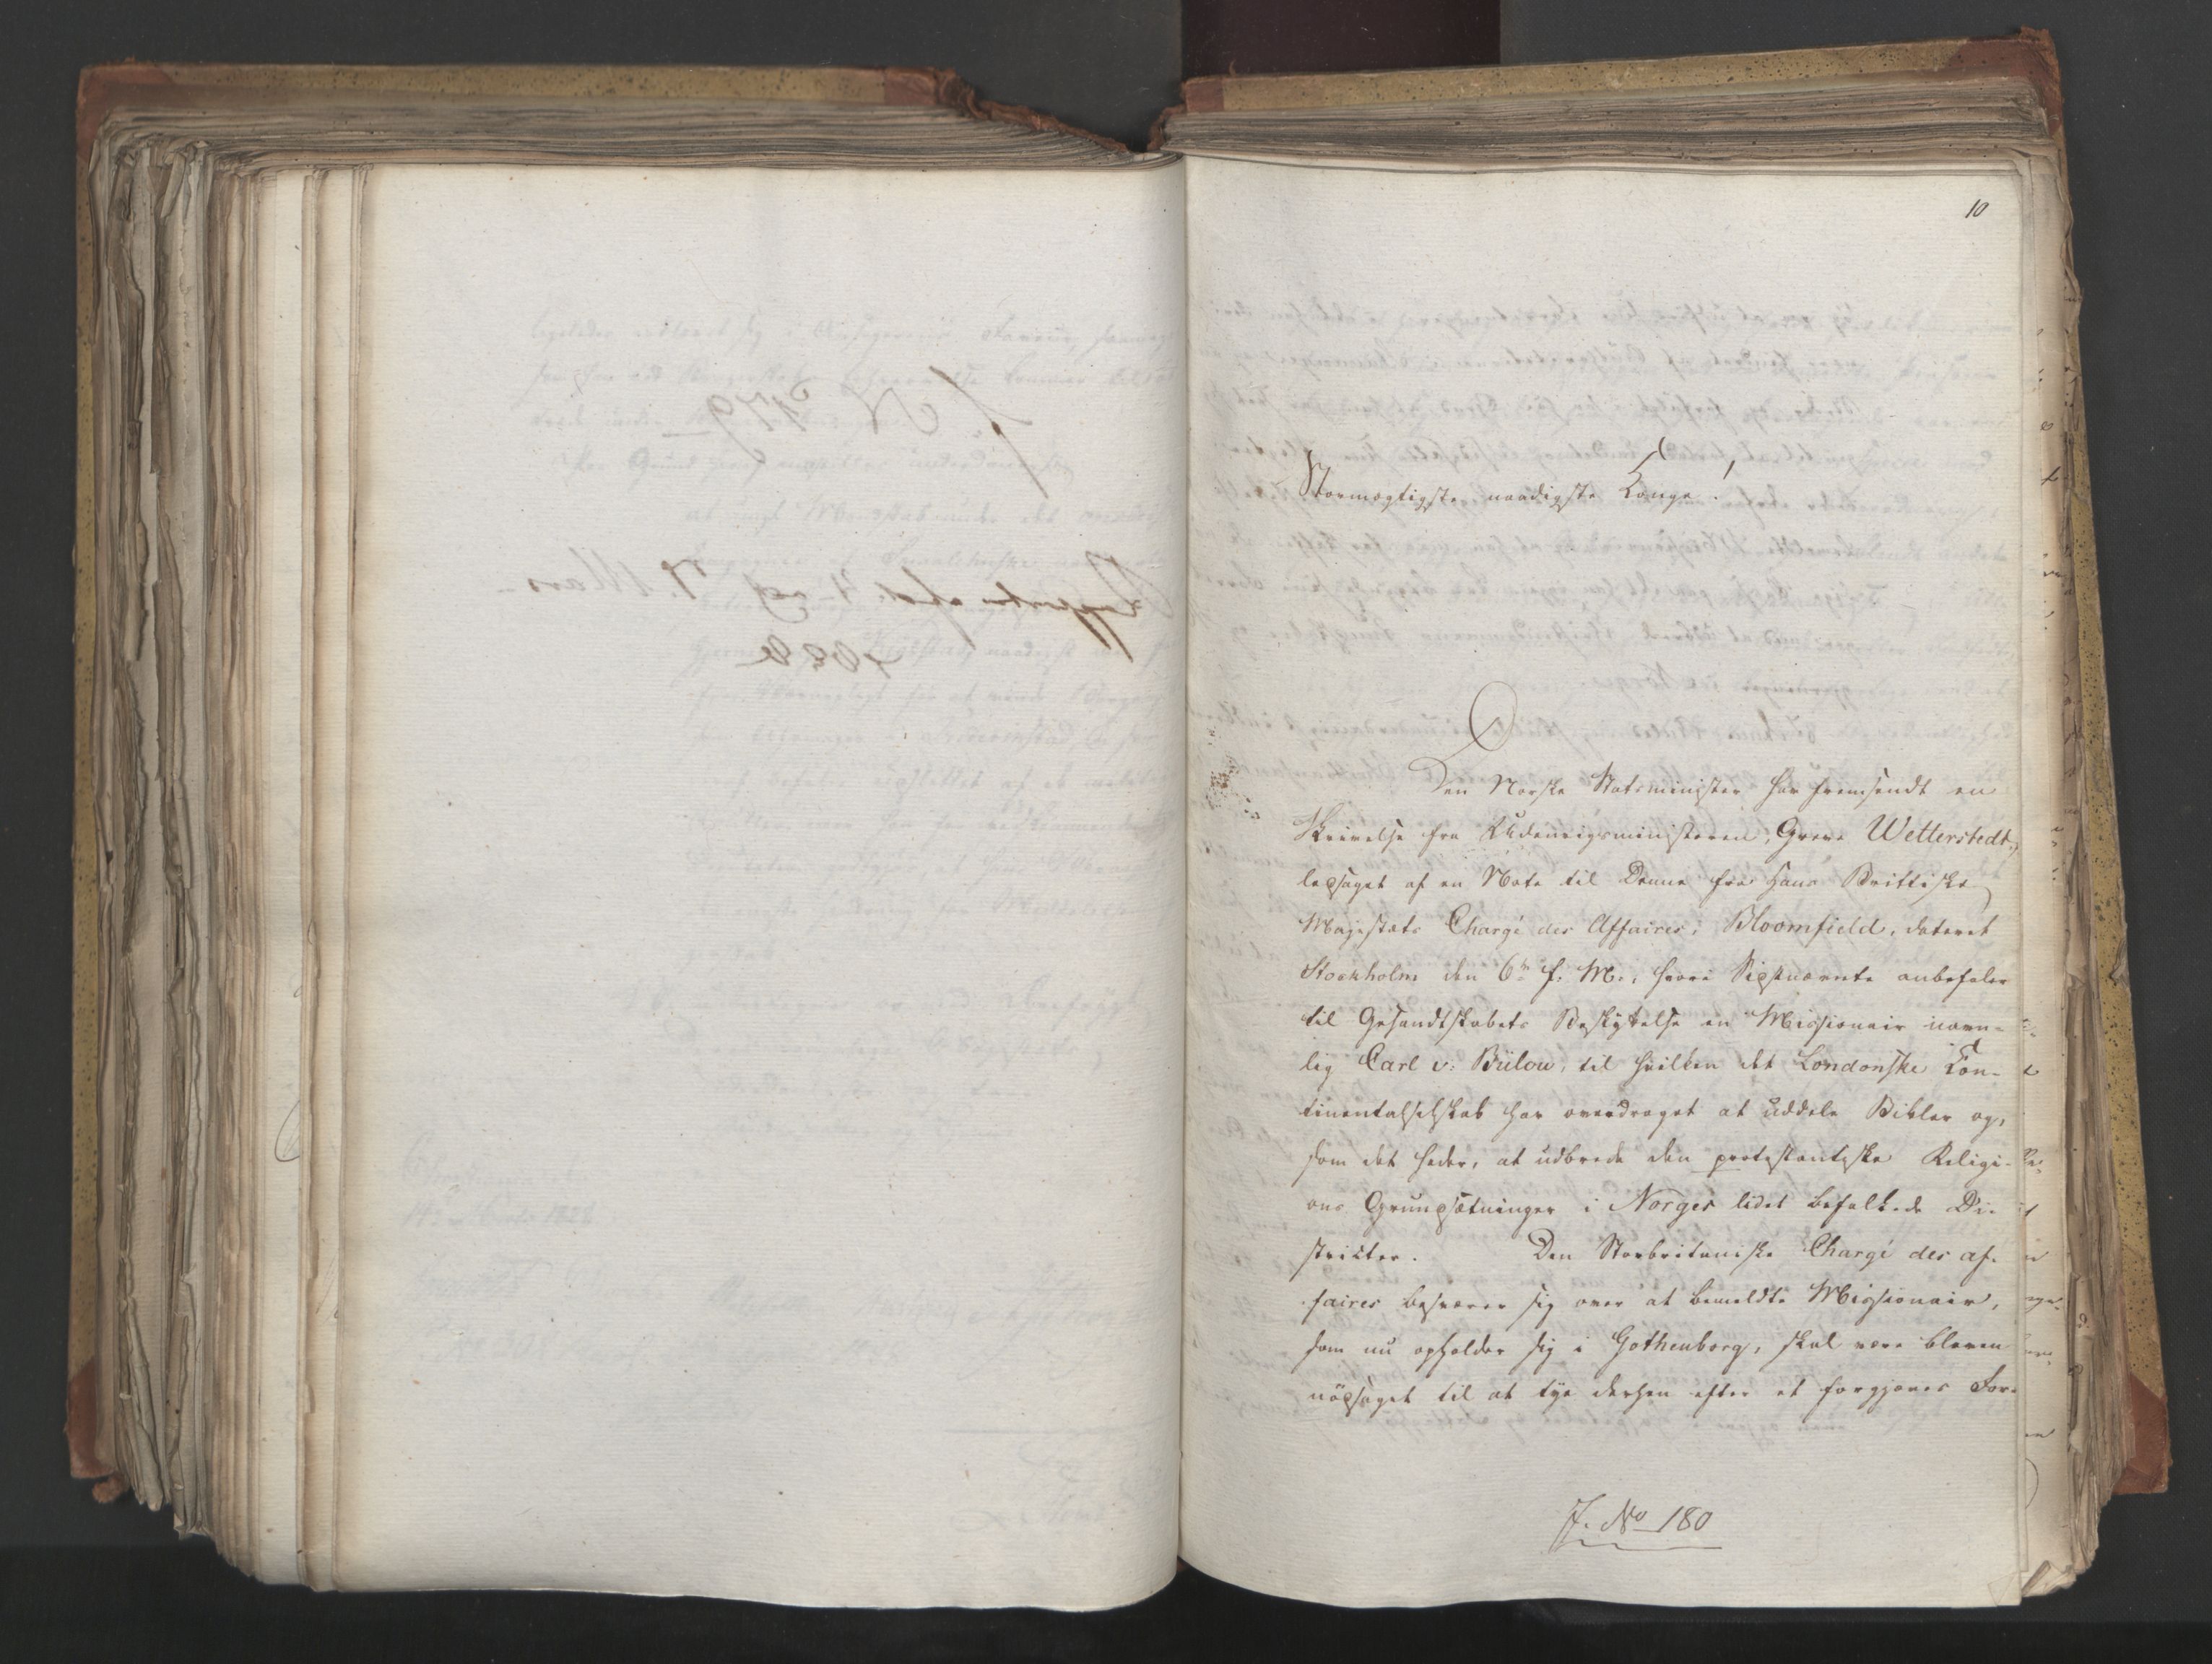 10
Stormægtigste naadigste Konge!
Den Norske Statsminister har fremsendt en
Skrivelse fra Udenrigsministeren, Greve Wetterstedt,
ledsaget af en Note til Denne fra Hans Brittiske
Majestæts Chargé des Affaires, Bloomfield, dateret
Stockholm den 6te f. M., hvori Sidstnævnte anbefaler
til Gesandtskabets Beskyttelse en Missionair navn-
lig Carl v: Bülow, til hvilken det Londonske Kon-
tinentalselskab har overdraget at uddele Bibler og,
som det heder, at udbrede den protestantiske Religi-
ons Grundsætninger i Norges lidet befolkede Di-
stricter. Den Storbritaniske Chargé des af-
faires besværer sig over at bemeldte Missionair,
som nu opholder sig i Gothenborg, skal være bleven
nödsaget til at tye derhen efter et forgjæves For-
J. No 180